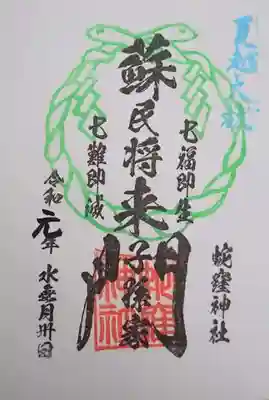 夏越大祓
七福即生
蘇民将来子孫家門
七難即滅
蛇窪神社
令和元年水無月卅日